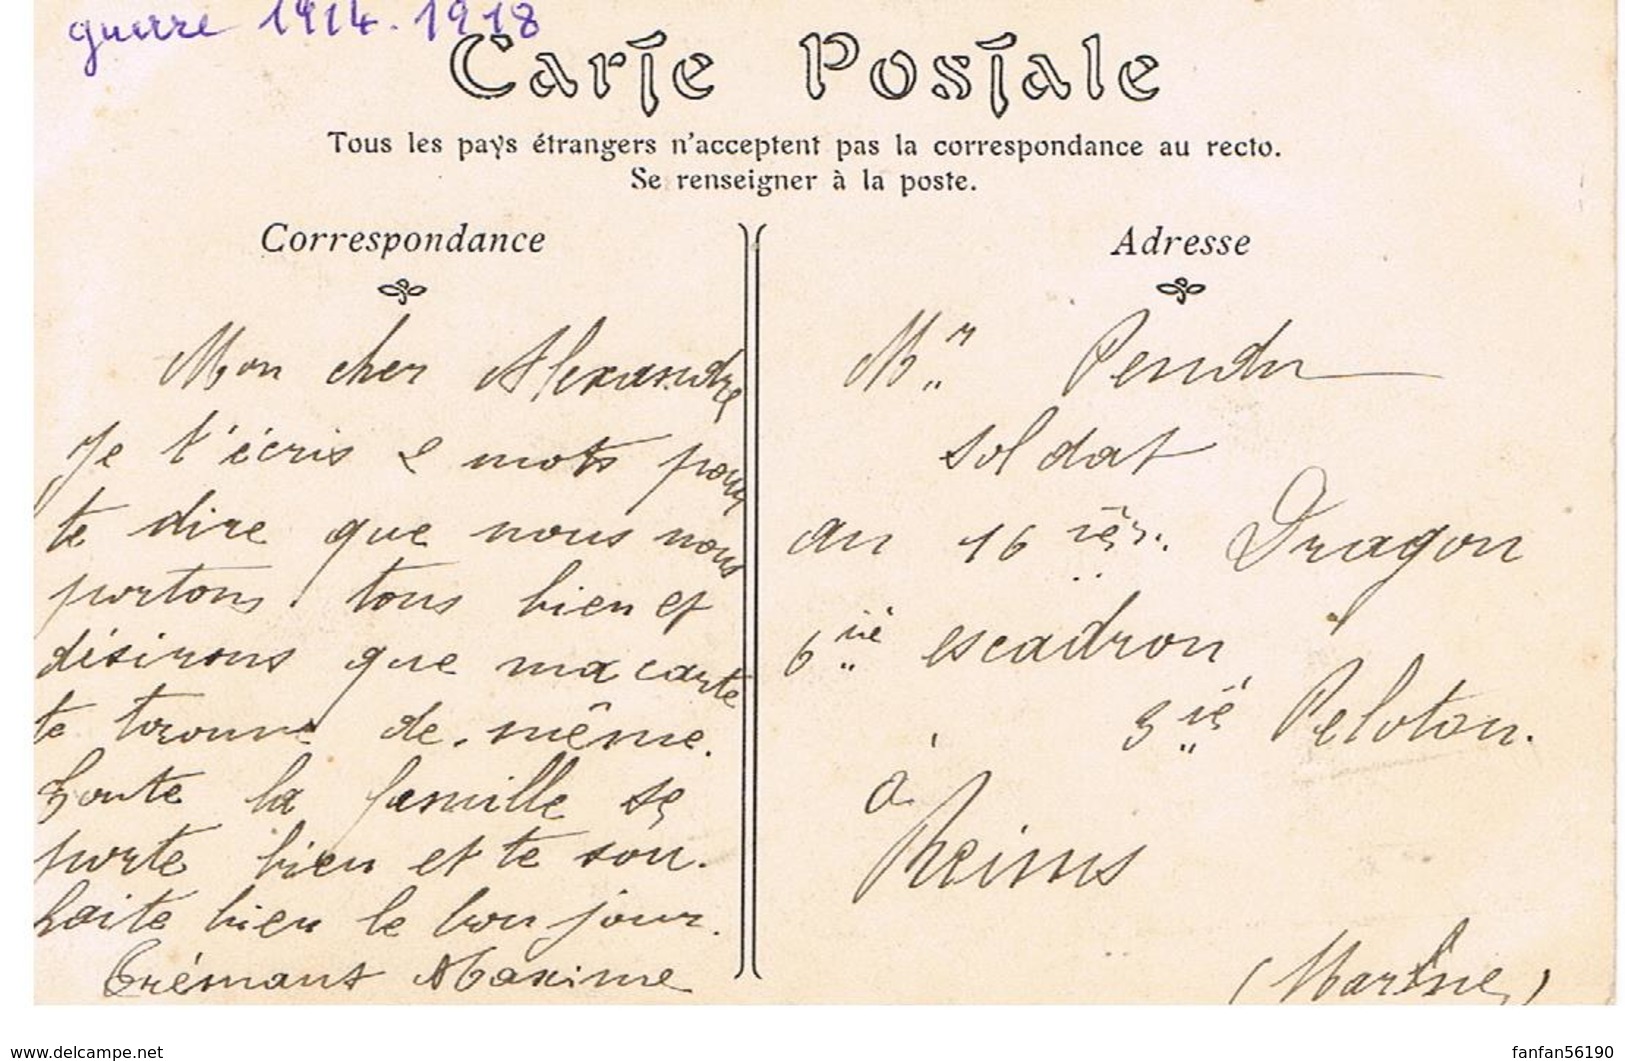 guerre 1914.1918
Carte Postale
Tous les pays étrangers n'acceptent pas la correspondance au recto.
Se renseigner à la poste.
Correspondance
Mon cher Alexandre
Je t'écris 2 mots pour
te dire que nous nous
portons tous bien et
désirons que ma carte
te trouve de même.
Toute la famille se
porte bien et te sou.
haite bien le bonjour.
Trémant Maxime
Adresse
Mr Pendu
soldat
au 16 ièr. Dragon
6 iè escadron
3 iè Peloton.
à
Reims
(Marne)
www.delcampe.net
fanfan56190